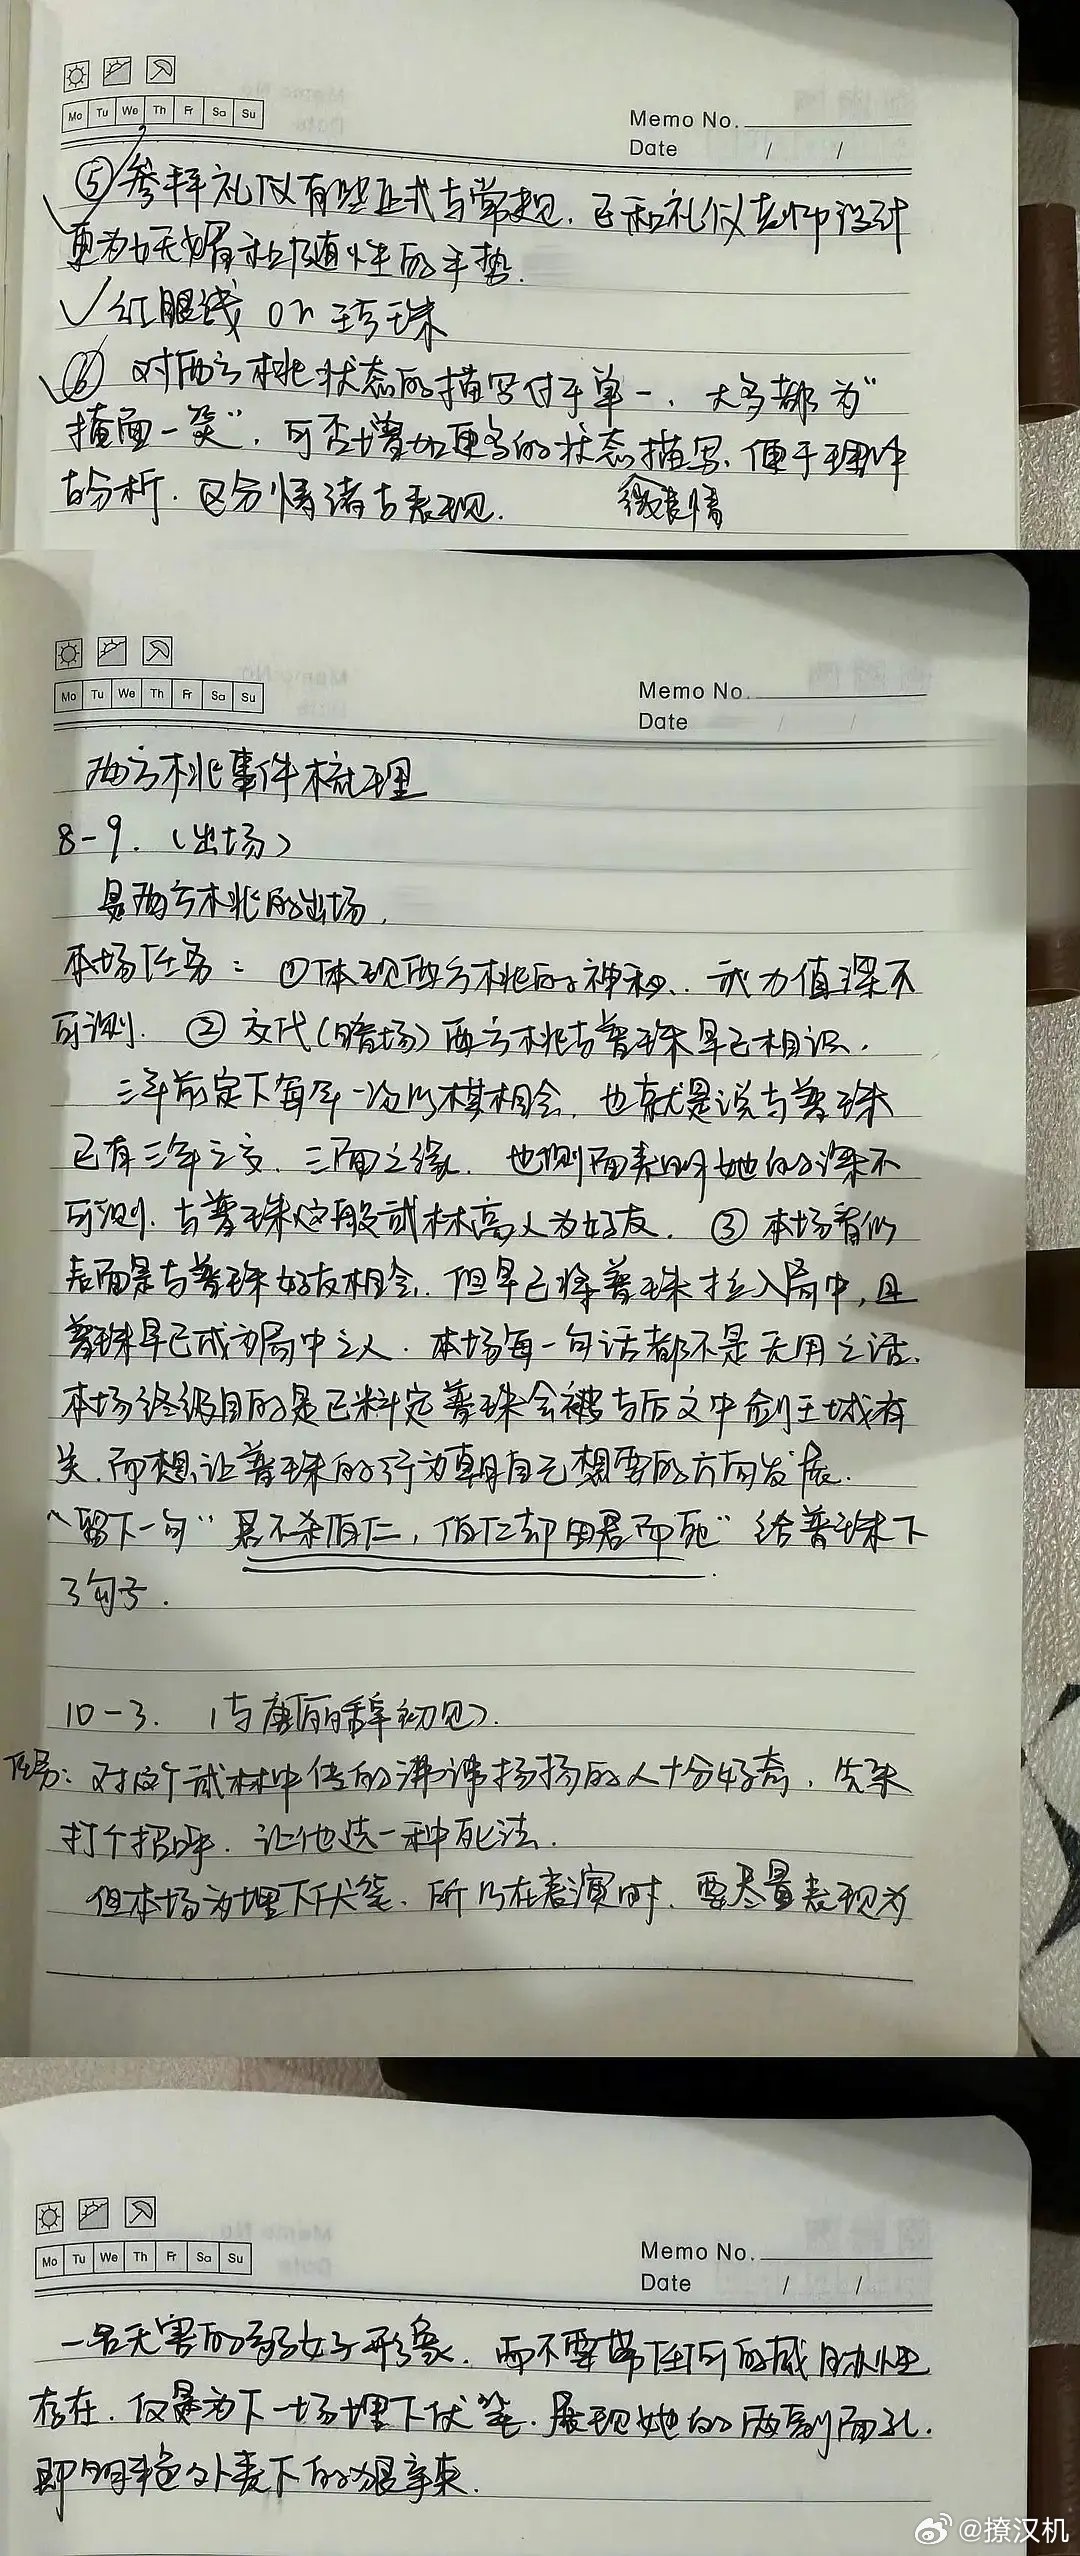 Mo Tu We Th Fr Sa Su
Memo No.
Date / /
⑤参拜礼仪有些正式与常规，已和礼仪老师设计
更为妩媚和随性的手势．
✓红腰线 or 珍珠
⑥ 对西方桃状态的描写过于单一，大多都为“
掩面一笑”，可否增加更多的状态描写、便于理解
与分析．区分情绪与表现．
微表情
Mo Tu We Th Fr Sa Su
Memo No.
Date / /
西方桃事件梳理
8-9．（出场）
是西方桃的出场．
本场任务：①体现西方桃的神秘、武力值深不
可测．②交代（暗场）西方桃与普珠早已相识．
三年前定下每年一次以棋相会，也就是说与普珠
已有三年之交、三面之缘．也侧面表明她的深不
可测．与普珠这般武林高人为好友．③本场看似
表面是与普珠好友相会，但早已将普珠拉入局中，且
普珠早已成为局中之人．本场每一句话都不是无用之话．
本场终极目的是已料定普珠会被与后文中剑王城有
关．而想让普珠的行为朝自己想要的方向发展．
留下一句“君不杀伯仁，伯仁却因君而死”给普珠下
了句子．
10-3．（与唐俪辞初见）．
任务：对这个武林中传的沸沸扬扬的人十分好奇，先来
打个招呼．让他选一种死法．
但本场为埋下伏笔．所以在表演时．要尽量表现为
Mo Tu We Th Fr Sa Su
Memo No.
Date / /
一名无害的弱女子形象．而不要带任何的威胁性
存在．仅是为下一场埋下伏笔．展现她的两副面孔．
即明艳外表下的狠辛辣．
@撩汉机